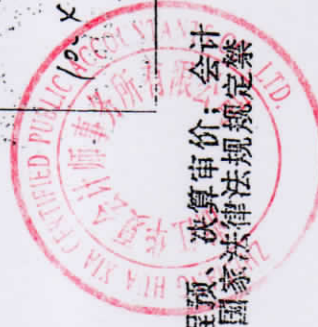 CERTIFIED PUBLIC ACCOUNTANTS CO., LTD.
HUA XIA
华夏会计师事务所有限
程预、决算审价；会计
国家法律法规规定禁